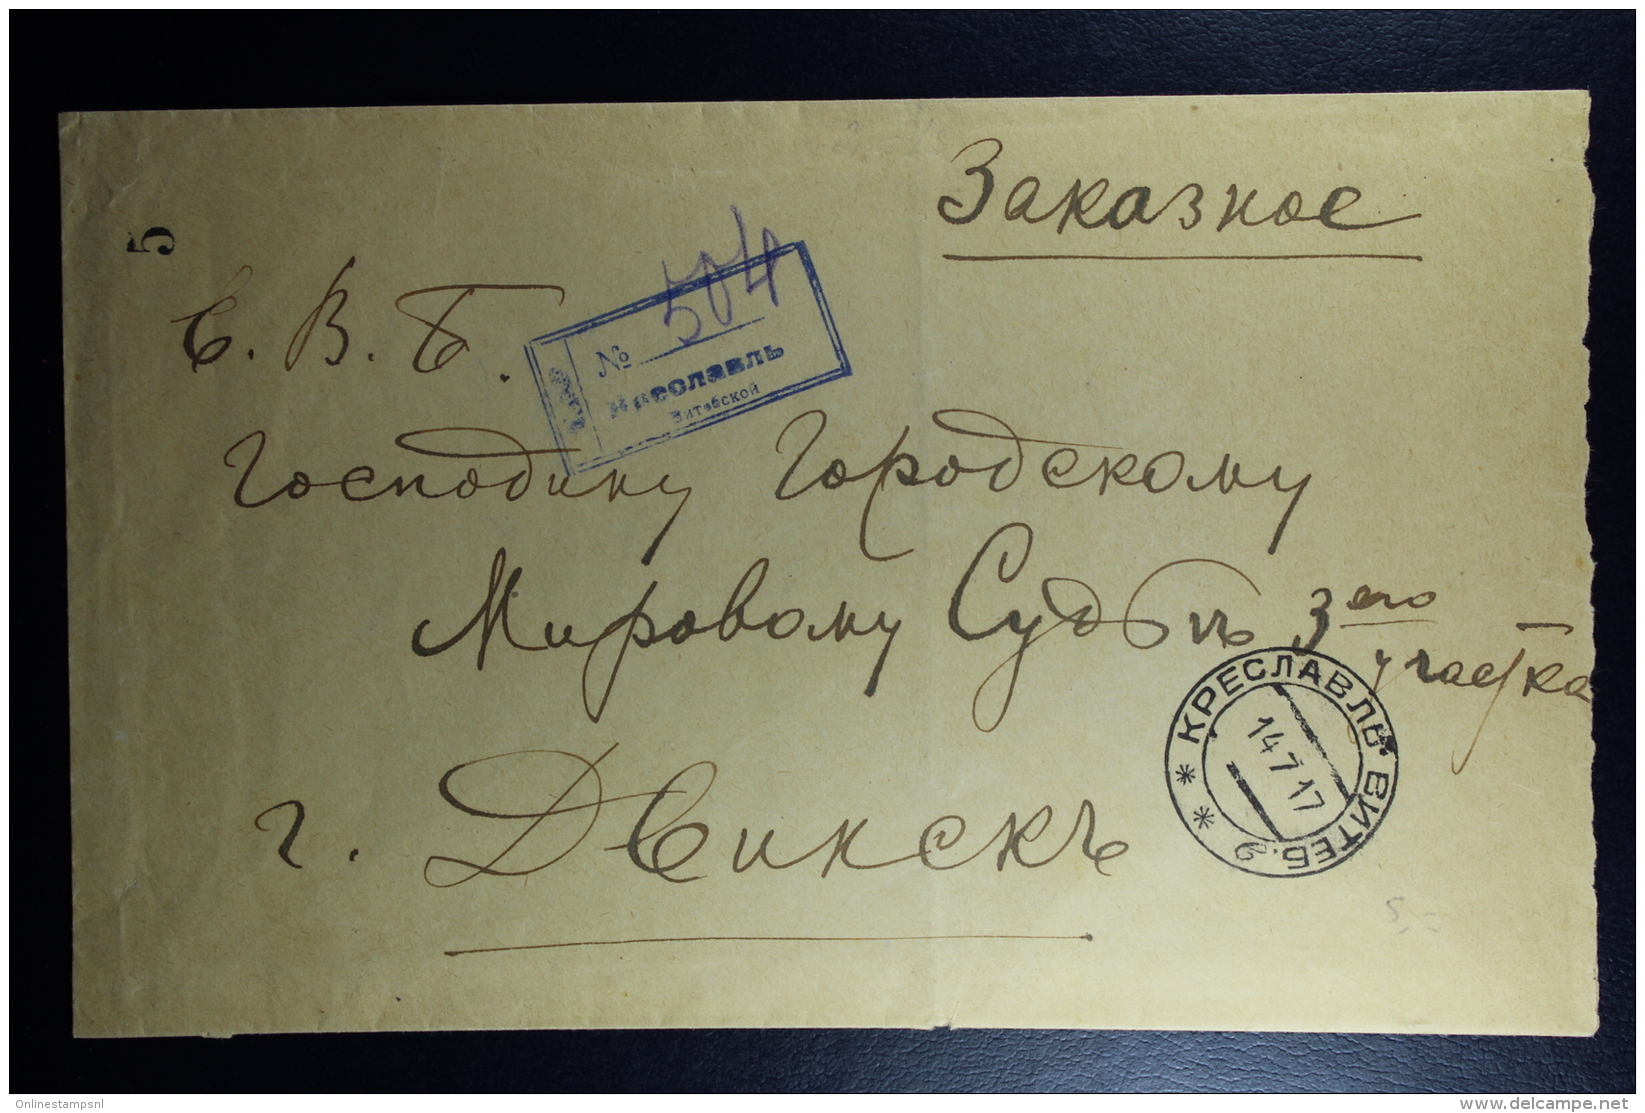 Заказное
5
С. В. Б.
№ 504
Креславль
Витебской
Господину Городскому
Мировому Судьѣ 3его
участка
КРЕСЛАВЛЬ ВИТЕБ.
14 7 17
г. Двинскъ
5,-
Onlinestampsnl
www.delcampe.net